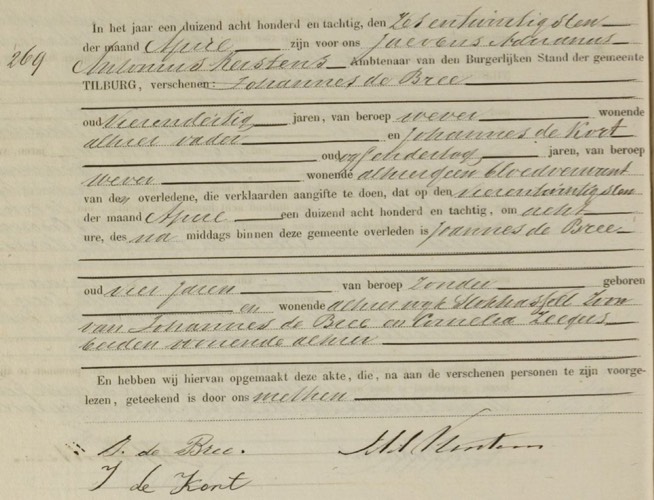 In het jaar een duizend acht honderd en tachtig, den Zes en twintigsten
der maand April zijn voor ons Jacobus Adrianus
269 Antonius Kerstens Ambtenaar van den Burgerlijken Stand der gemeente
TILBURG, verschenen: Johannes de Bree
oud vierendertig jaren, van beroep wever wonende
alhier vader en Johannes de Kort
oud vyfendertig jaren, van beroep
wever wonende alhier geen bloedverwant
van den overledene, die verklaarden aangifte te doen, dat op den vierentwintigsten
der maand April een duizend acht honderd en tachtig, om acht
ure, des na middags binnen deze gemeente overleden is Joannes de Bree
oud vier Jaren van beroep Zonder geboren
en wonende alhier wyk Stokhasselt Zoon
van Johannes de Bree en Cornelia Zeegers
beiden wonende alhier
En hebben wij hiervan opgemaakt deze akte, die, na aan de verschenen personen te zijn voorge-
lezen, geteekend is door ons met hen
J. de Bree. Kerstens
J de Kort